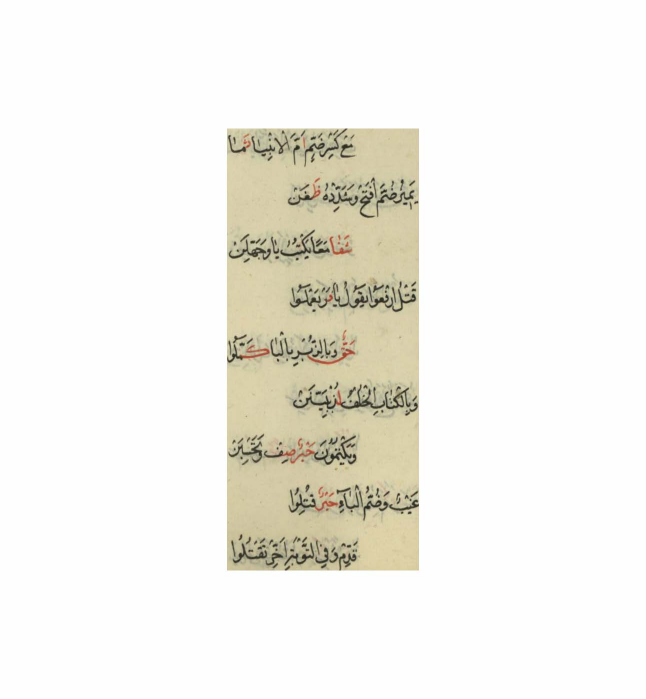 مَعَ كَسْرِ ضَمٍّ أَمْ الأَنْبِيَا فَمَا
يَمِيزَ ضُمَّ افْتَحْ وَشَدِّدْهُ ظَعَنْ
شَفَا مَعًا يَكْتُبُ يَا وَجَهِّلَنْ
قَتْلَ ارْفَعُوا يَقُولُ يَا فُزْ يَعْمَلُوا
حَقٌّ وَبِالزُّبْرِ بِالْبَا كَمَّلُوا
وَبِالْكِتَابِ الْخُلْفُ لُذْ يُبَيِّنَنْ
وَيَكْتُمُونَ حَبْرُ صِفْ وَيَحْسَبَنْ
غَيْبٌ وَضَمُّ الْبَاءِ حَبْرٌ قُتِلُوا
قَدِّمْ وَفِي التَّوْبَةِ أَخِّرْ يَقْتُلُوا